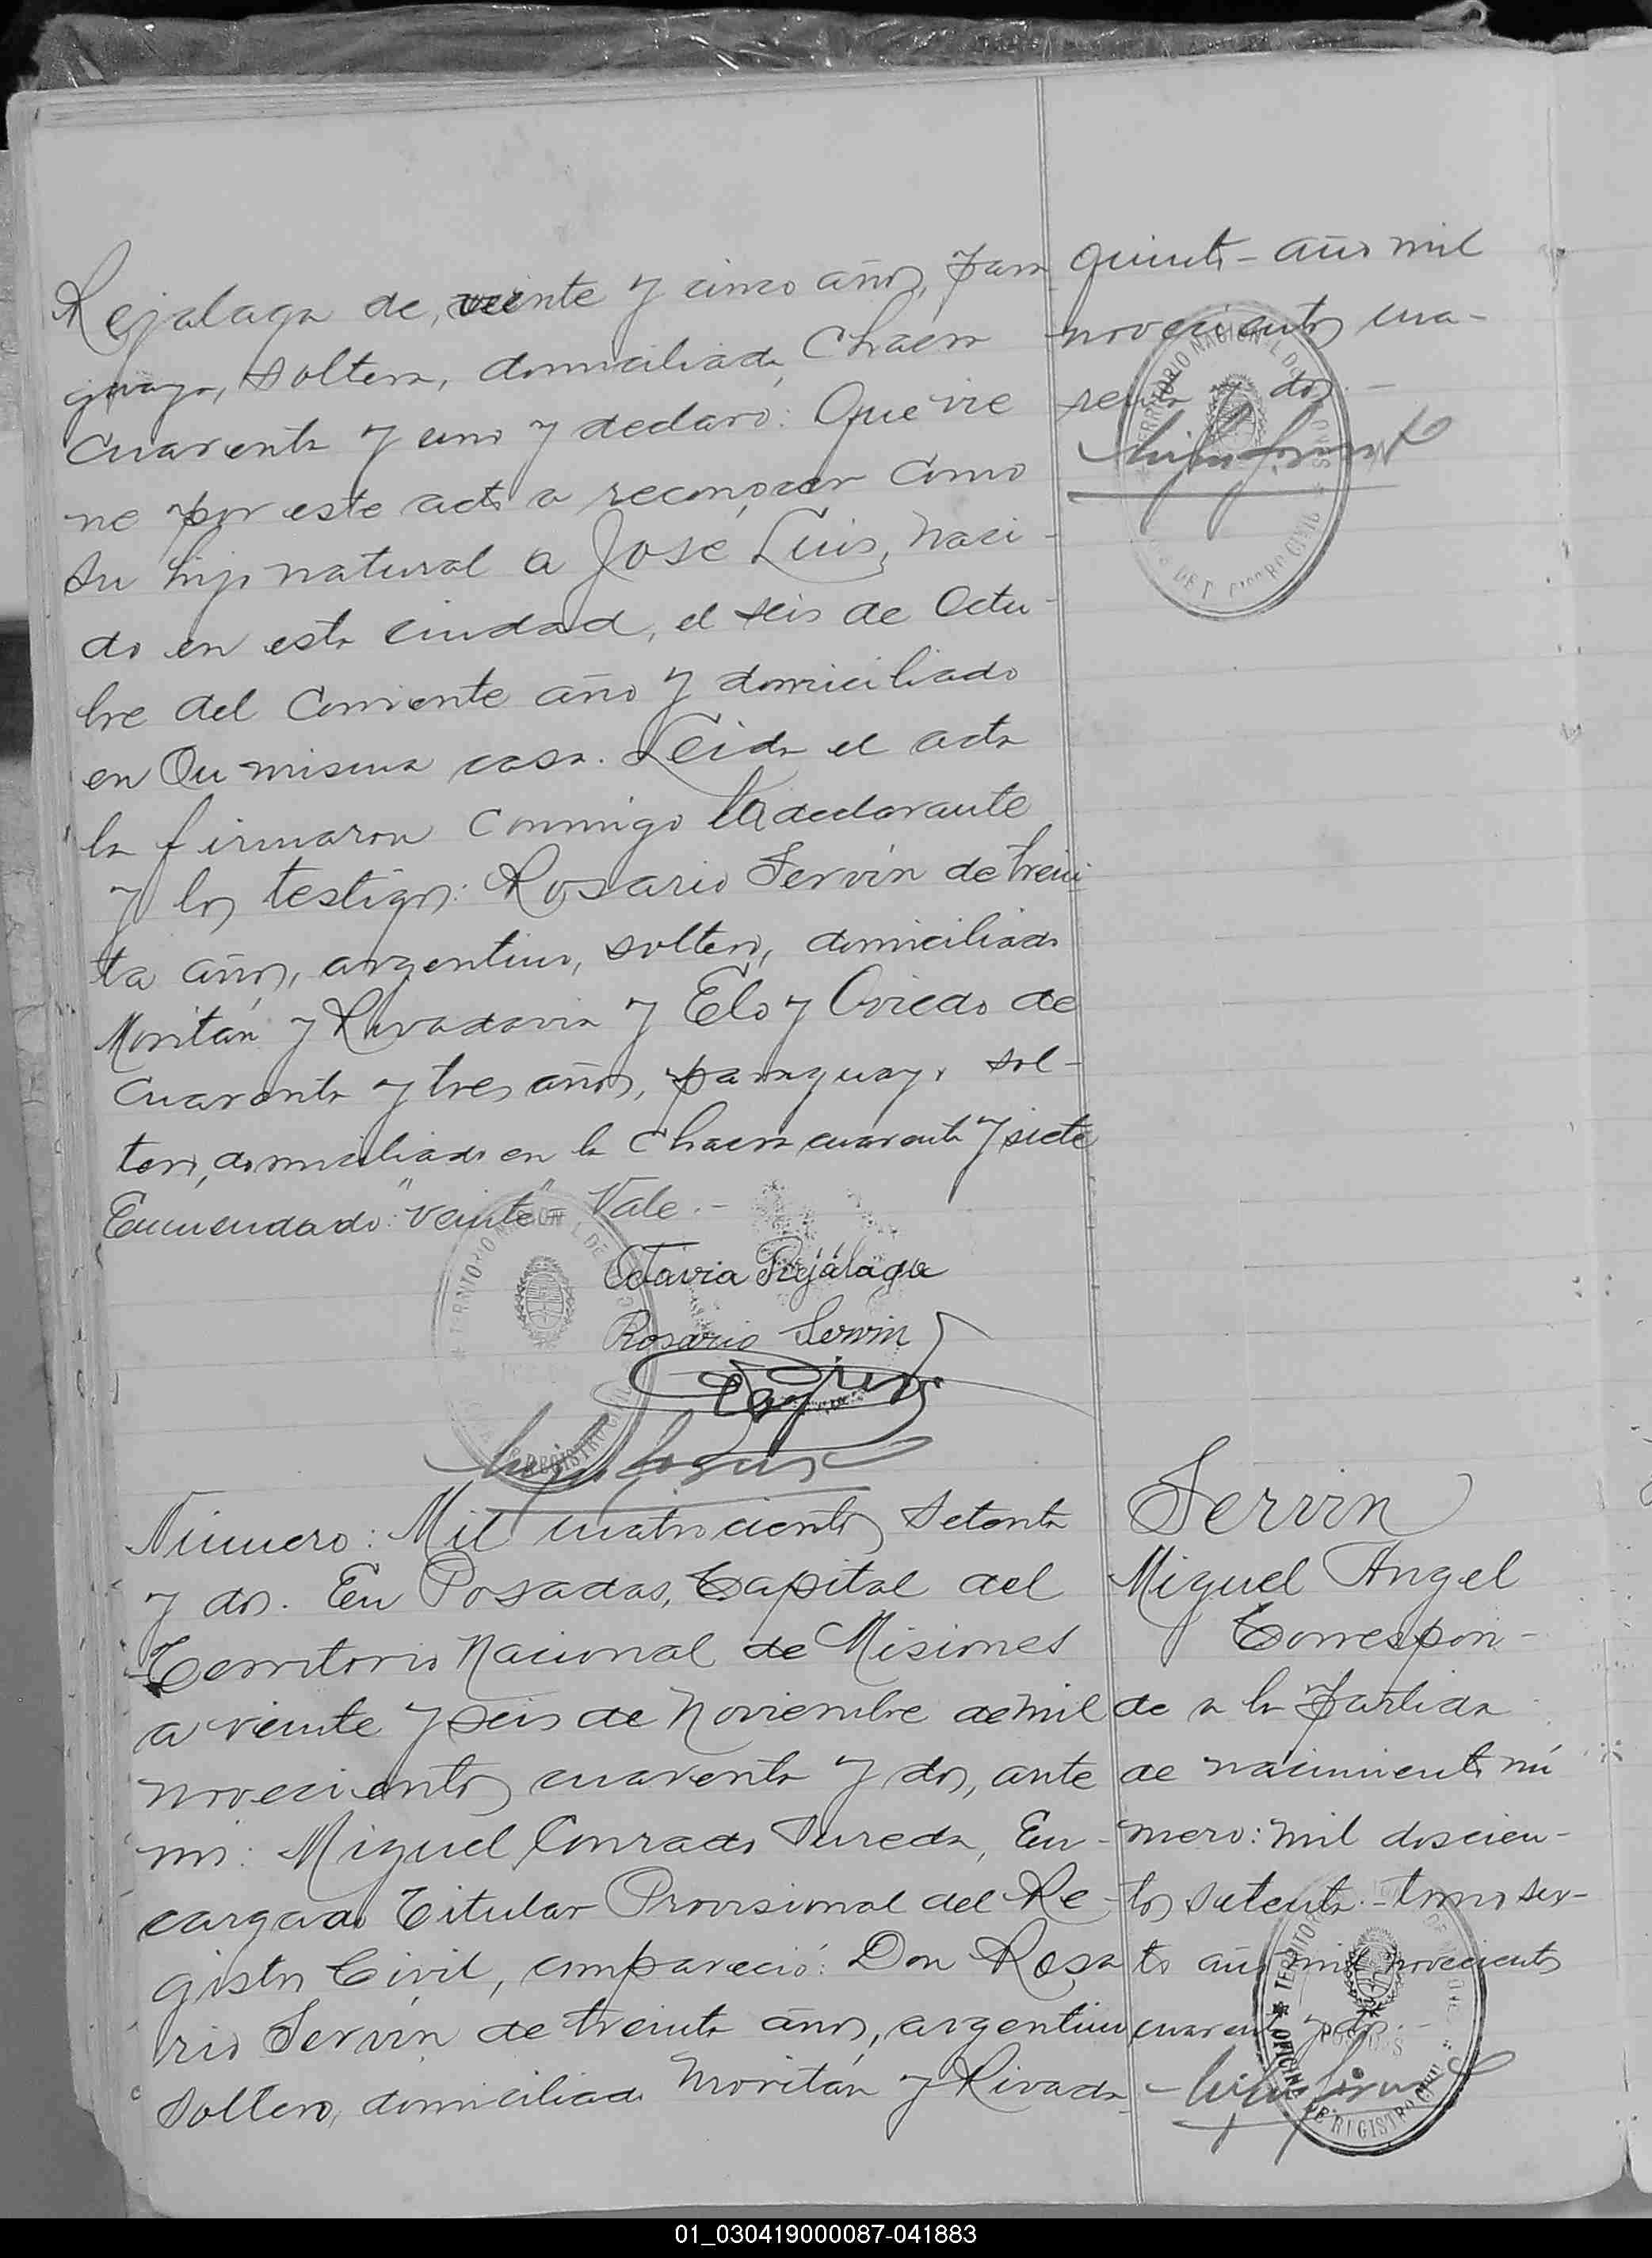 Rejalaga de, veinte y cinco años, para
guaya, soltera, domiciliada Chacra
cuarenta y uno y declaró: Que vie
ne por este acto a reconocer como
su hijo natural a José Luis, naci-
do en esta ciudad, el seis de Octu-
bre del corriente año y domiciliado
en su misma casa. Leida el acta
la firmaron conmigo la declarante
y los testigos: Rosario Servín de trein
ta años, argentino, soltero, domiciliado
Moritán y Rivadavia y Eloy Oviedo de
cuarenta y tres años, paraguayo, sol-
tero, domiciliado en la Chacra cuarenta y siete
Enmendado: "veinte" Vale.-
Otavia Rejálaga
Rosario Servin
quinto - año mil
novecientos cua-
renta y dos.-
TERRITORIO NACIONAL DE
REGISTRO CIVIL
Número: Mil cuatrocientos setenta
y dos. En Posadas, Capital del
Territorio Nacional de Misiones
a veinte y seis de Noviembre de mil
novecientos cuarenta y dos, ante
mi: Miguel Conrado Sureda, En-
cargado Titular Provisional del Re-
gistro Civil, compareció: Don Rosa
rio Servín de treinta años, argentino
soltero, domiciliado Moritán y Rivada-
Servin
Miguel Angel
Correspon-
de a la partida
de nacimiento nú
mero: mil doscien-
tos setenta.- tomo sex-
to año mil novecientos
cuarenta y dos.-
OFICINA DE REGISTRO CIVIL
POSADAS
01_030419000087-041883